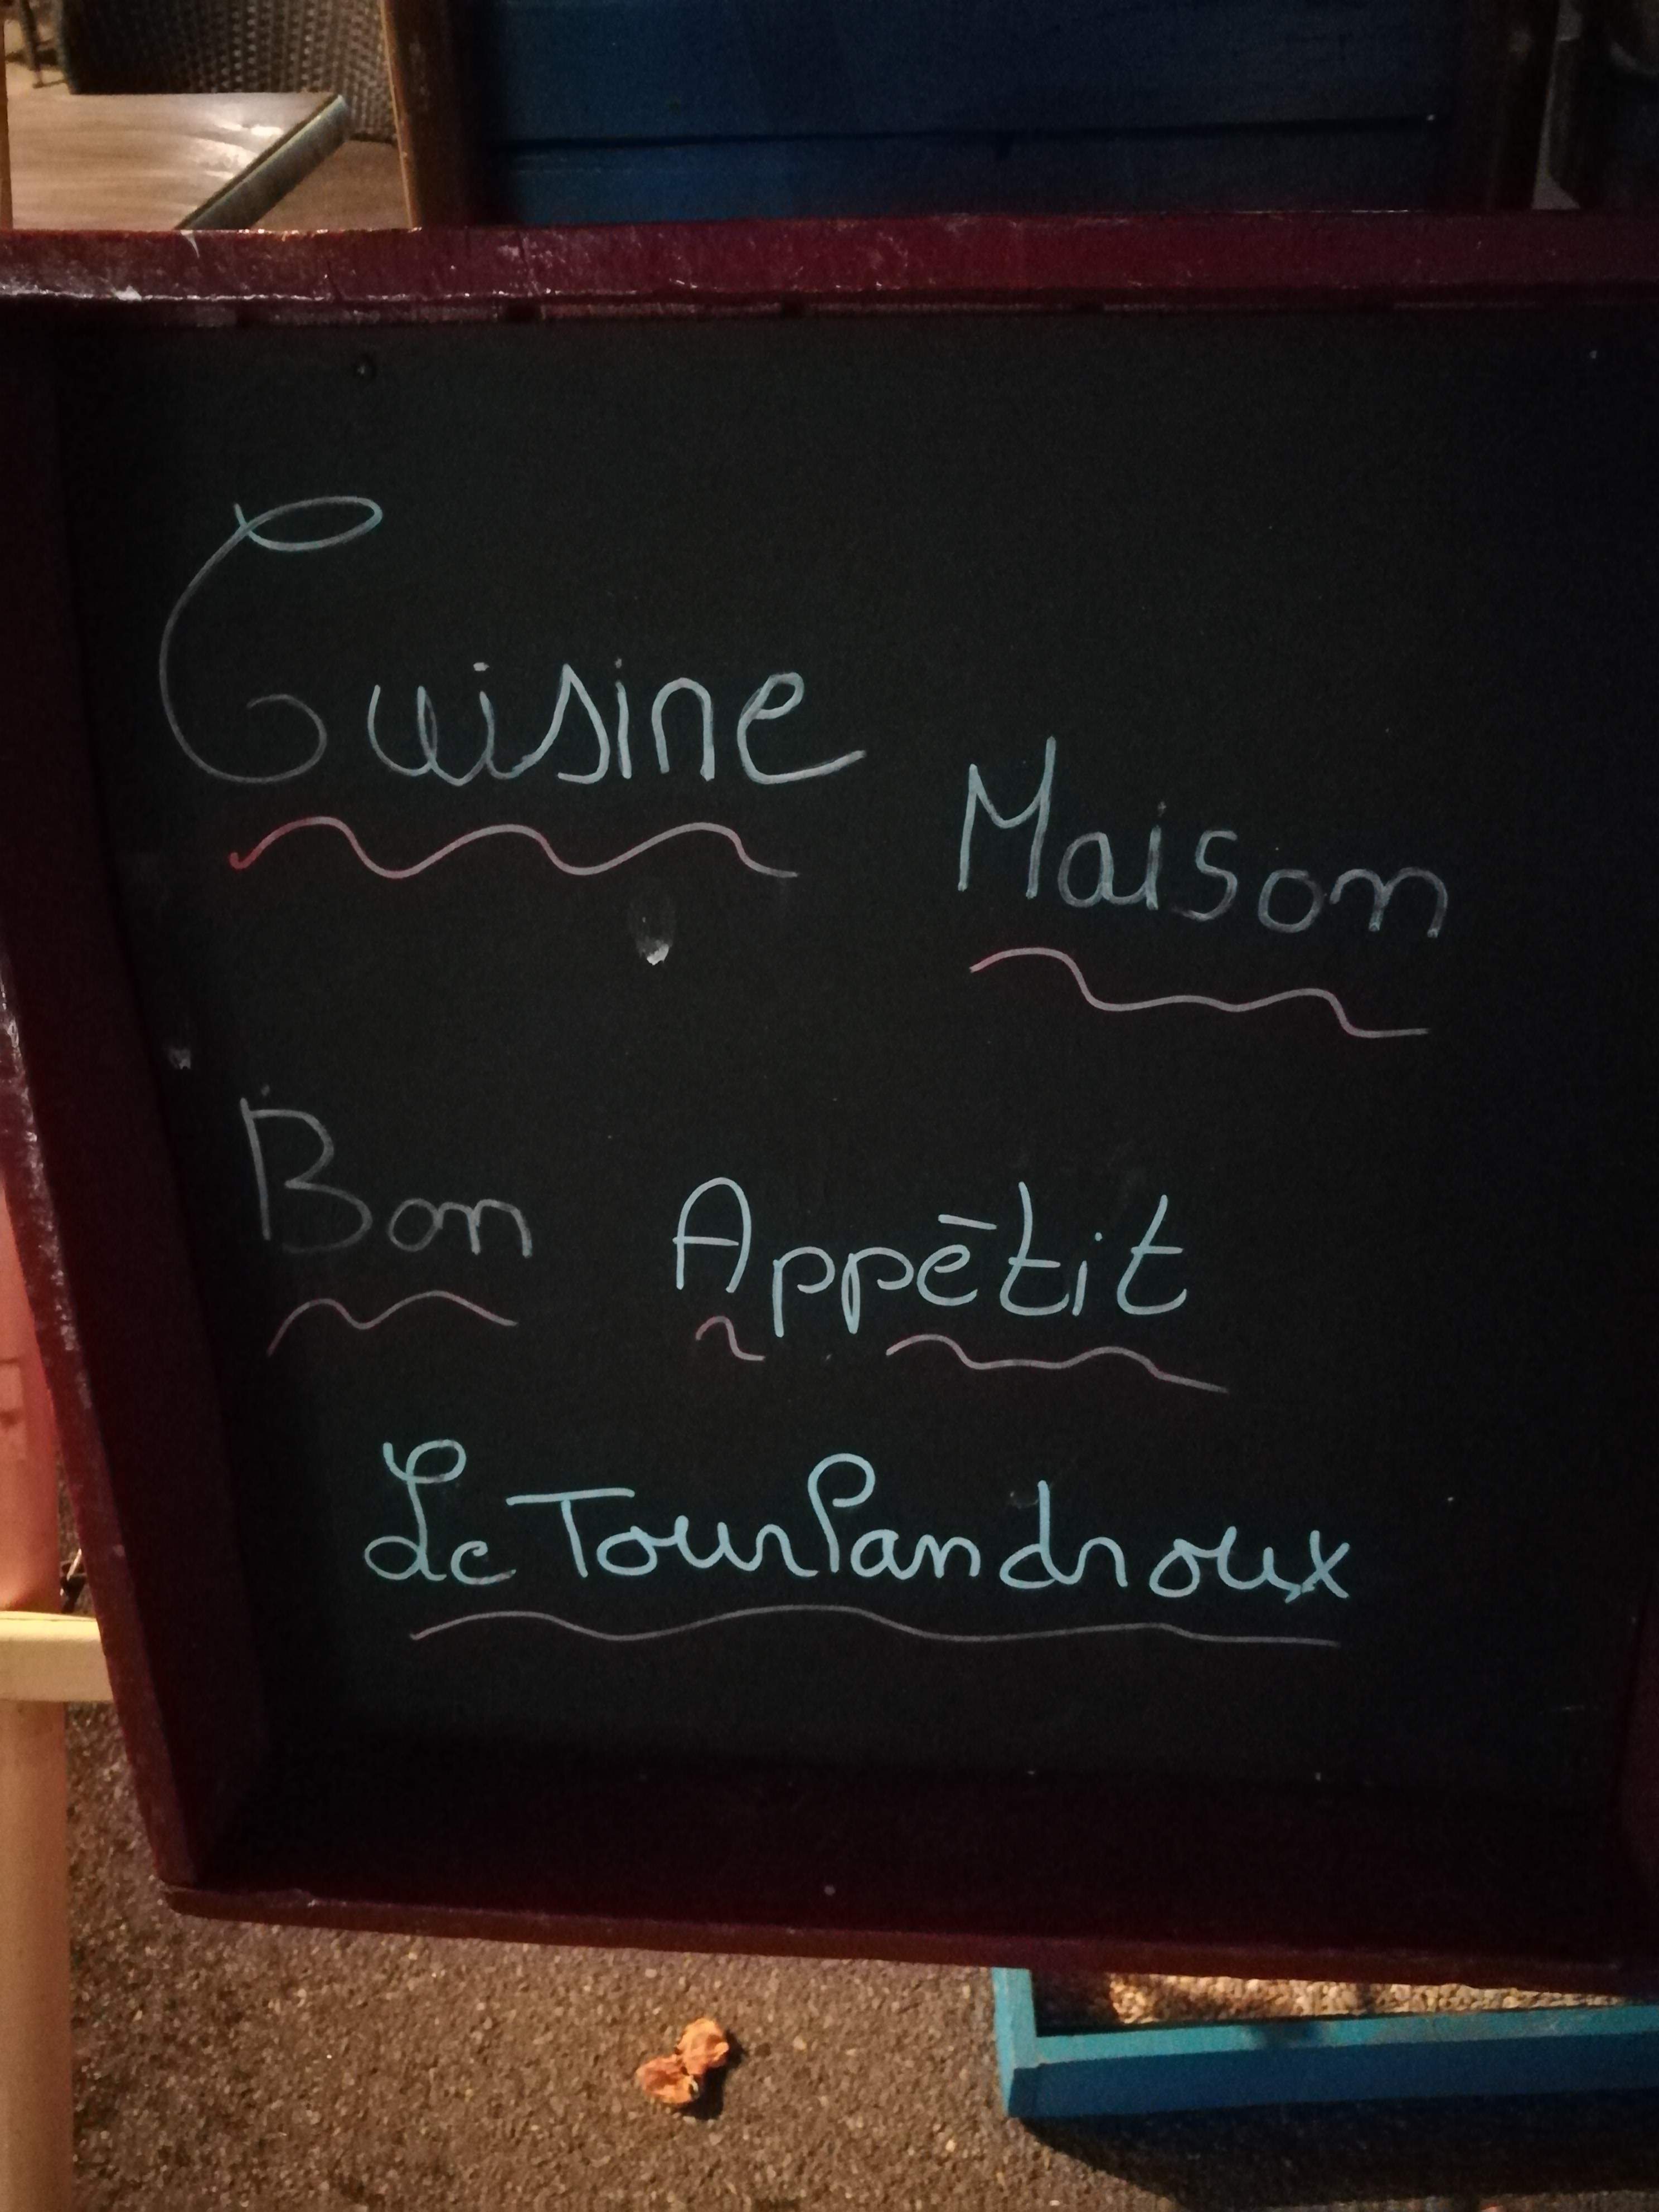 Cuisine
Maison
Bon Appētit
Le TourPandroux